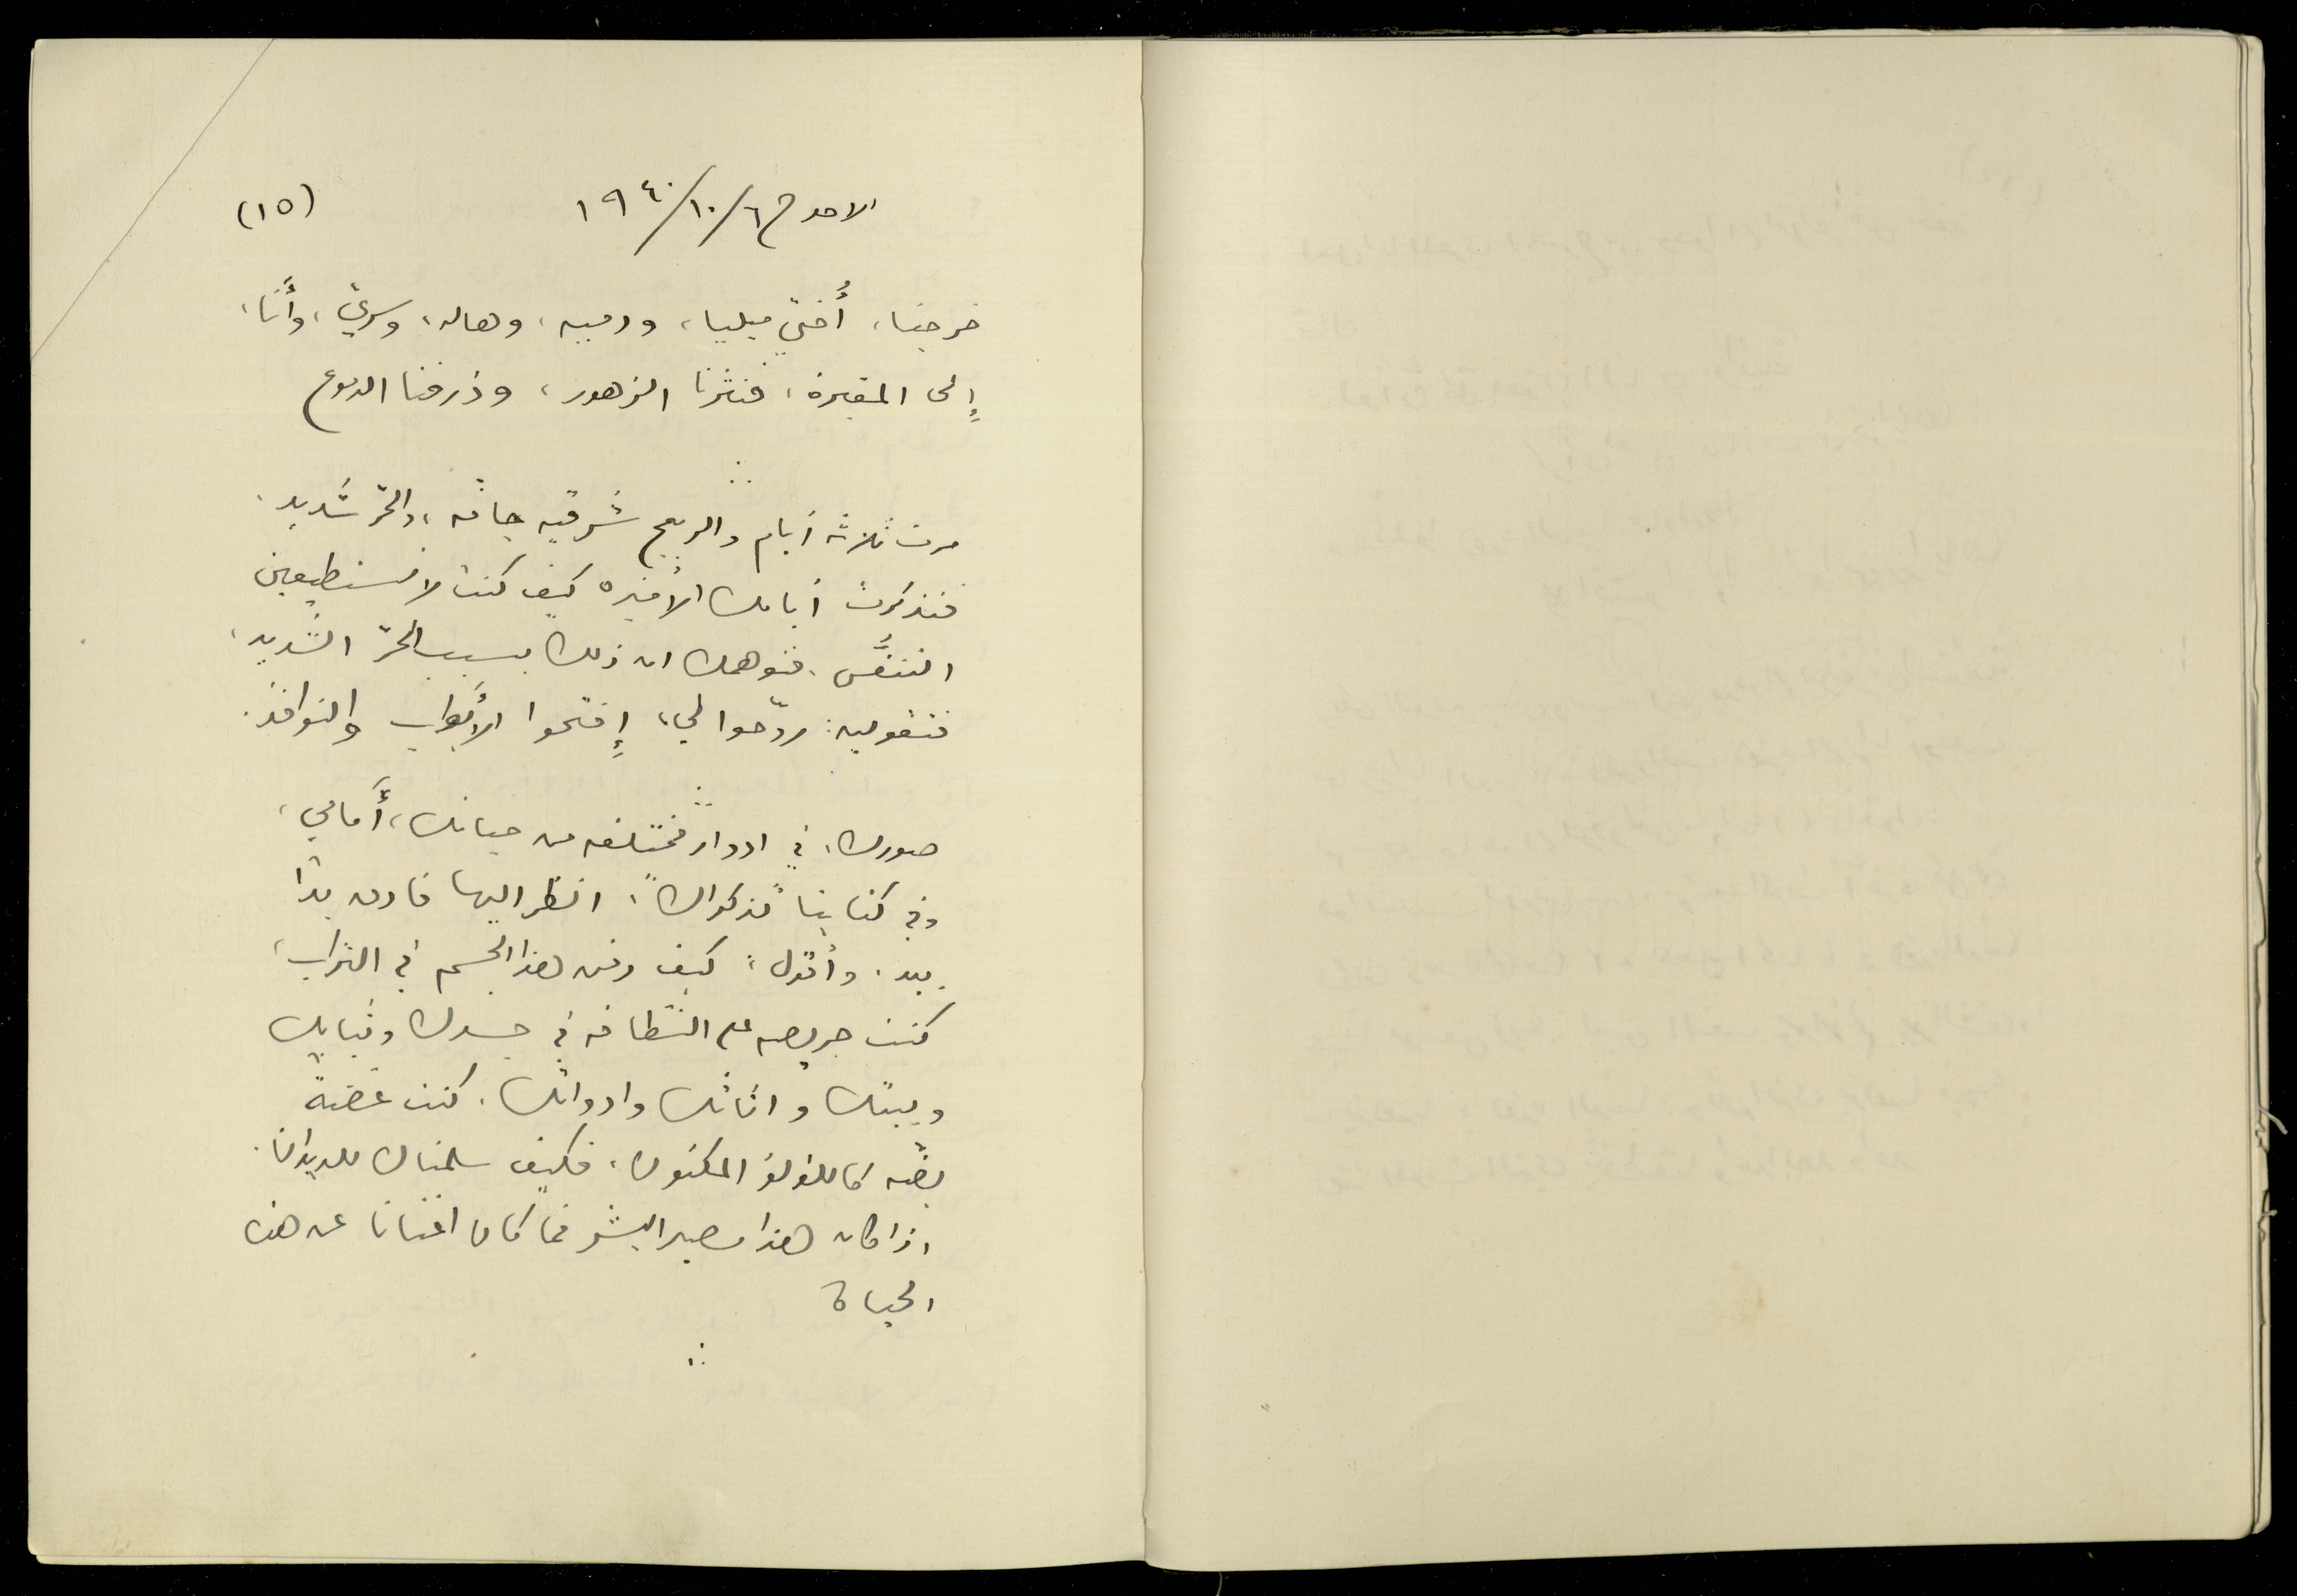 (١٥)
الاحد في ٦/١٠/١٩٤٠
خرجنا، أُختي ميليا، ودميه، وهاله، وسري، وأَنا،
إِلى المقبرة، فنثرنا الزهور، وذرفنا الدموع
∴
مرت ثلاثة أيام والريح شرقيه جافه، والحرّ شديد.
فتذكرت أيامك الأخيره كيف كنت لا تستطيعين
التنفُّس. فتوهمك ان ذلك بسبب الحرّ الشديد،
فتقولين: روّحوا لي، إِفتحوا الأَبواب والنوافذ.
∴
صورك، في ادوار مختلفه من حياتك، أَمامي،
وفي كتابنا "ذكراك". انظر اليها فادق يدًا
بيد. وأقول: كيف دفن هذا الجسم في التراب،
كنت حريصه على النظافه في جسدك وثيابك
وبيتك واثاثك وادواتك. كنت غضةً
بضّه كاللؤلؤ المكنون، فكيف سلمناك للديدان.
اذا كان هذا مصير البشر فما كان اغنانا عن هذه
الحياة
∴